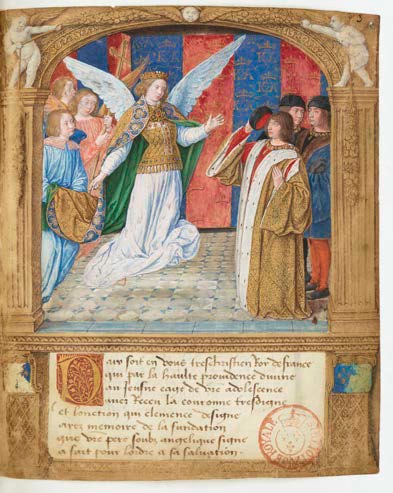 Paix soit en vous treschrestien Roy de france
qui par la haulte providence divine
au jeusne eage de vre adolescence
avez Receu la couronne tresdigne
et lonction qui clemence designe
ayez memoire de la fundation
que vre pere soubz angelique signe
a fait pour lordre a sa salvation